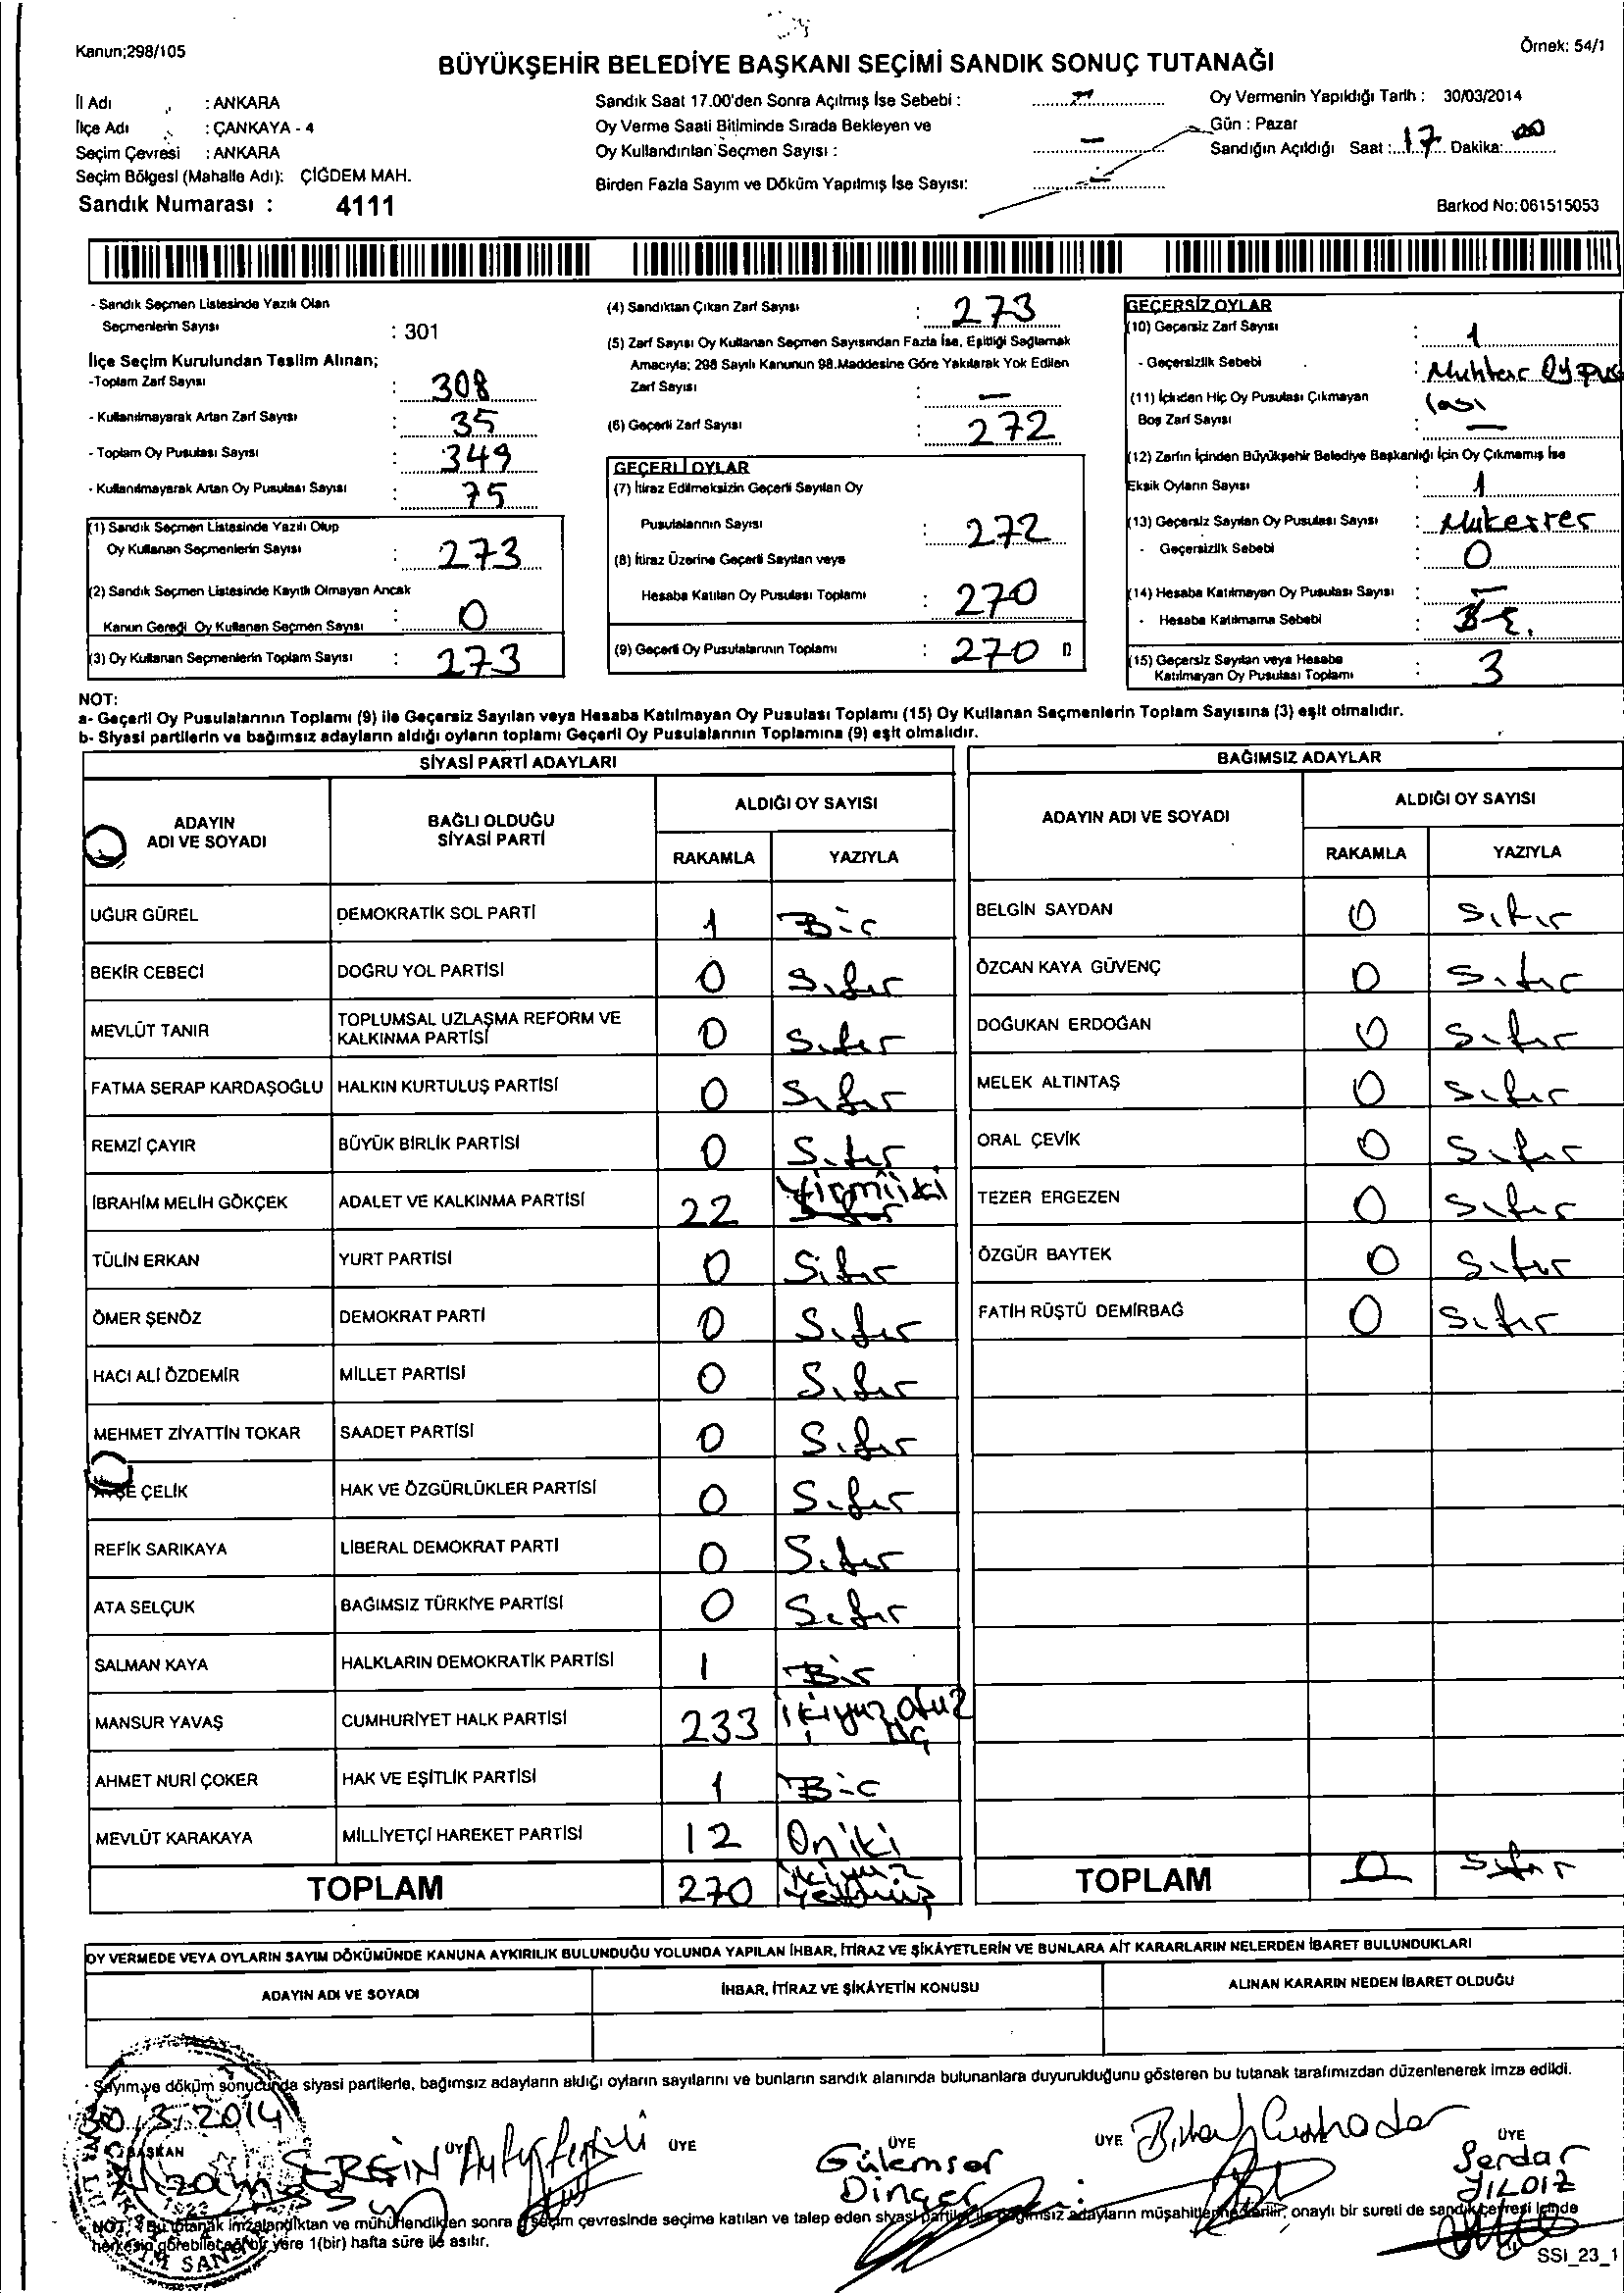 Kanun;298/105
Örnek: 54/1
BÜYÜKŞEHİR BELEDİYE BAŞKANI SEÇİMİ SANDIK SONUÇ TUTANAĞI
İl Adı : ANKARA
İlçe Adı : ÇANKAYA - 4
Seçim Çevresi : ANKARA
Seçim Bölgesi (Mahalle Adı): ÇİĞDEM MAH.
Sandık Numarası : 4111
Sandık Saat 17.00'den Sonra Açılmış İse Sebebi :
Oy Verme Saati Bitiminde Sırada Bekleyen ve
Oy Kullandırılan Seçmen Sayısı : —
Birden Fazla Sayım ve Döküm Yapılmış İse Sayısı: —
Oy Vermenin Yapıldığı Tarih : 30/03/2014
Gün : Pazar
Sandığın Açıldığı Saat : 17 Dakika: 00
Barkod No:061515053
- Sandık Seçmen Listesinde Yazılı Olan
Seçmenlerin Sayısı : 301
İlçe Seçim Kurulundan Teslim Alınan;
-Toplam Zarf Sayısı : 308
- Kullanılmayarak Artan Zarf Sayısı : 35
- Toplam Oy Pusulası Sayısı : 349
- Kullanılmayarak Artan Oy Pusulası Sayısı : 75
(1) Sandık Seçmen Listesinde Yazılı Olup
Oy Kullanan Seçmenlerin Sayısı : 273
(2) Sandık Seçmen Listesinde Kayıtlı Olmayan Ancak
Kanun Gereği Oy Kullanan Seçmen Sayısı : 0
(3) Oy Kullanan Seçmenlerin Toplam Sayısı : 273
(4) Sandıktan Çıkan Zarf Sayısı : 273
(5) Zarf Sayısı Oy Kullanan Seçmen Sayısından Fazla İse, Eşitliği Sağlamak
Amacıyla; 298 Sayılı Kanunun 98.Maddesine Göre Yakılarak Yok Edilen
Zarf Sayısı : —
(6) Geçerli Zarf Sayısı : 272
GEÇERLİ OYLAR
(7) İtiraz Edilmeksizin Geçerli Sayılan Oy
Pusulalarının Sayısı : 272
(8) İtiraz Üzerine Geçerli Sayılan veya
Hesaba Katılan Oy Pusulası Toplamı : 270
(9) Geçerli Oy Pusulalarının Toplamı : 270
GEÇERSİZ OYLAR
(10) Geçersiz Zarf Sayısı : 1
- Geçersizlik Sebebi : Muhtar Oy Pus
lası
(11) İçinden Hiç Oy Pusulası Çıkmayan
Boş Zarf Sayısı : —
(12) Zarfın İçinden Büyükşehir Belediye Başkanlığı İçin Oy Çıkmamış İse
Eksik Oyların Sayısı : 1
(13) Geçersiz Sayılan Oy Pusulası Sayısı : Mükerrer
- Geçersizlik Sebebi : 0
(14) Hesaba Katılmayan Oy Pusulası Sayısı : —
- Hesaba Katılmama Sebebi :
(15) Geçersiz Sayılan veya Hesaba
Katılmayan Oy Pusulası Toplamı : 3
NOT:
a- Geçerli Oy Pusulalarının Toplamı (9) ile Geçersiz Sayılan veya Hesaba Katılmayan Oy Pusulası Toplamı (15) Oy Kullanan Seçmenlerin Toplam Sayısına (3) eşit olmalıdır.
b- Siyasi partilerin ve bağımsız adayların aldığı oyların toplamı Geçerli Oy Pusulalarının Toplamına (9) eşit olmalıdır.
SİYASİ PARTİ ADAYLARI
ADAYIN ADI VE SOYADI BAĞLI OLDUĞU SİYASİ PARTİ ALDIĞI OY SAYISI
RAKAMLA YAZIYLA
UĞUR GÜREL DEMOKRATİK SOL PARTİ 1 Bir
BEKİR CEBECİ DOĞRU YOL PARTİSİ 0 Sıfır
MEVLÜT TANIR TOPLUMSAL UZLAŞMA REFORM VE KALKINMA PARTİSİ 0 Sıfır
FATMA SERAP KARDAŞOĞLU HALKIN KURTULUŞ PARTİSİ 0 Sıfır
REMZİ ÇAYIR BÜYÜK BİRLİK PARTİSİ 0 Sıfır
İBRAHİM MELİH GÖKÇEK ADALET VE KALKINMA PARTİSİ 22 Yirmiiki
TÜLİN ERKAN YURT PARTİSİ 0 Sıfır
ÖMER ŞENÖZ DEMOKRAT PARTİ 0 Sıfır
HACI ALİ ÖZDEMİR MİLLET PARTİSİ 0 Sıfır
MEHMET ZİYATTİN TOKAR SAADET PARTİSİ 0 Sıfır
AYŞE ÇELİK HAK VE ÖZGÜRLÜKLER PARTİSİ 0 Sıfır
REFİK SARIKAYA LİBERAL DEMOKRAT PARTİ 0 Sıfır
ATA SELÇUK BAĞIMSIZ TÜRKİYE PARTİSİ 0 Sıfır
SALMAN KAYA HALKLARIN DEMOKRATİK PARTİSİ 1 Bir
MANSUR YAVAŞ CUMHURİYET HALK PARTİSİ 233 ikiyüz otuz üç
AHMET NURİ ÇOKER HAK VE EŞİTLİK PARTİSİ 1 Bir
MEVLÜT KARAKAYA MİLLİYETÇİ HAREKET PARTİSİ 12 Oniki
TOPLAM 270 ikiyüz yetmiş
BAĞIMSIZ ADAYLAR
ADAYIN ADI VE SOYADI ALDIĞI OY SAYISI
RAKAMLA YAZIYLA
BELGİN SAYDAN 0 Sıfır
ÖZCAN KAYA GÜVENÇ 0 Sıfır
DOĞUKAN ERDOĞAN 0 Sıfır
MELEK ALTINTAŞ 0 Sıfır
ORAL ÇEVİK 0 Sıfır
TEZER ERGEZEN 0 Sıfır
ÖZGÜR BAYTEK 0 Sıfır
FATİH RÜŞTÜ DEMİRBAĞ 0 Sıfır
TOPLAM 0 Sıfır
OY VERMEDE VEYA OYLARIN SAYIM DÖKÜMÜNDE KANUNA AYKIRILIK BULUNDUĞU YOLUNDA YAPILAN İHBAR, İTİRAZ VE ŞİKÂYETLERİN VE BUNLARA AİT KARARLARIN NELERDEN İBARET BULUNDUKLARI
ADAYIN ADI VE SOYADI İHBAR, İTİRAZ VE ŞİKÂYETİN KONUSU ALINAN KARARIN NEDEN İBARET OLDUĞU
Sayım ve döküm sonucunda siyasi partilerle, bağımsız adayların aldığı oyların sayılarını ve bunların sandık alanında bulunanlara duyurulduğunu gösteren bu tutanak tarafımızdan düzenlenerek imza edildi.
30/3/2014
BAŞKAN ÜYE ÜYE ÜYE ÜYE ÜYE
ERGİN
Gülemser
Dinçer
Serdar
YILDIZ
NOT: Bu tutanak imzalandıktan ve mühürlendikten sonra seçim çevresinde seçime katılan ve talep eden siyasi partiler ile bağımsız adayların müşahitlerine verilir, onaylı bir sureti de sandık çevresi içinde
herkesin görebileceği bir yere 1(bir) hafta süre ile asılır.
SSI_23_1